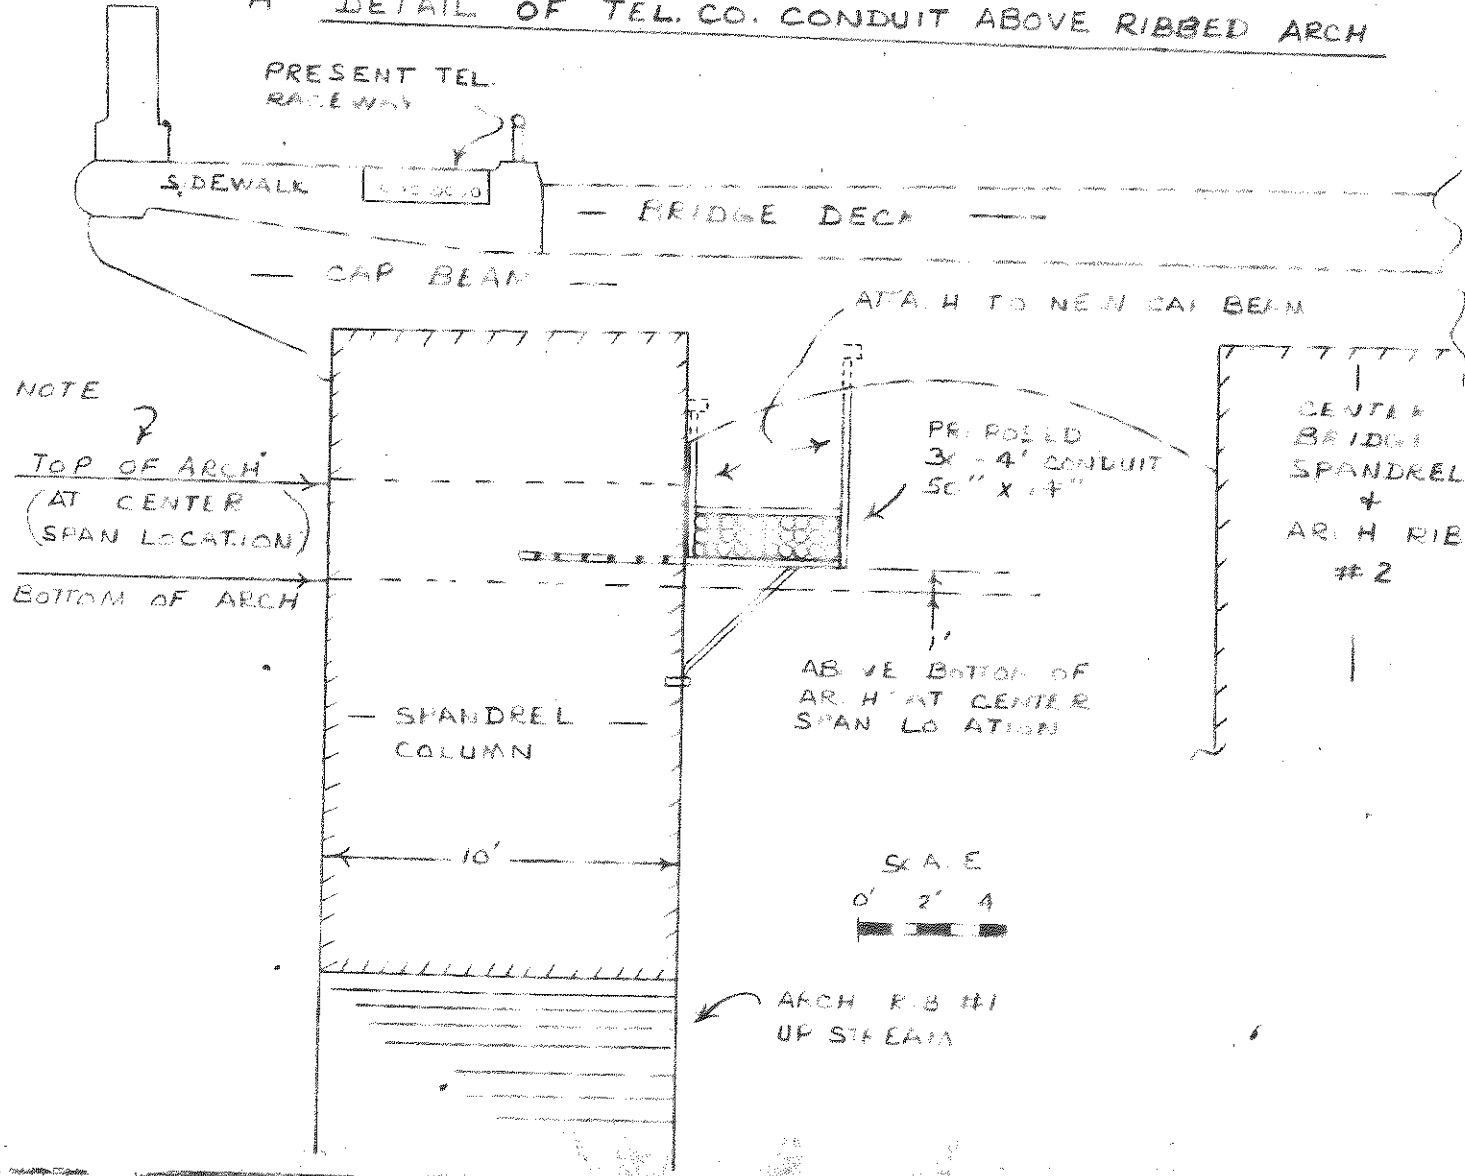 A DETAIL OF TEL. CO. CONDUIT ABOVE RIBBED ARCH
PRESENT TEL.
RACEWAY
SIDEWALK
— BRIDGE DECK —
— CAP BEAM —
ATTACH TO NEW CAP BEAM
NOTE
?
TOP OF ARCH
(AT CENTER
SPAN LOCATION)
BOTTOM OF ARCH
PROPOSED
4" CONDUIT
CENTER
BRIDGE
SPANDREL
&
ARCH RIB
#2
1'
ABOVE BOTTOM OF
ARCH AT CENTER
SPAN LOCATION
— SPANDREL —
COLUMN
10'
SCALE
0' 2' 4
ARCH RIB #1
UPSTREAM